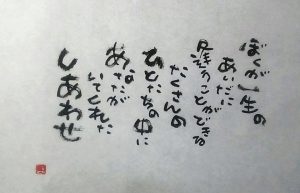 ぼくが一生の
あいだに
出逢うことができる
たくさんの
ひとたちの中に
あなたが
いてくれた
しあわせ